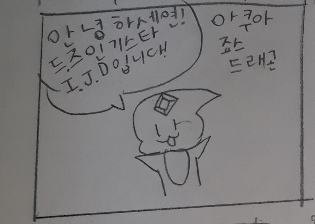 안녕하세연!
드.주인.기스타
I.J.D입니다!
아쿠아
죠스
드래곤